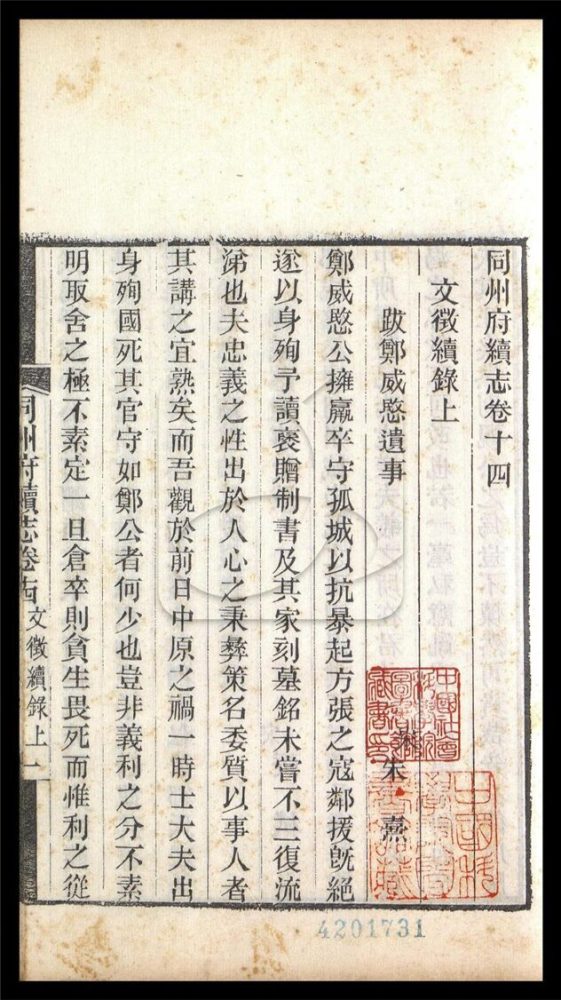 同州府續志卷十四
文徵續錄上
跋鄭威愍遺事
宋朱熹
鄭威愍公擁羸卒守孤城以抗暴起方張之寇鄰援旣絕
遂以身殉予讀褒贈制書及其家刻墓銘未嘗不三復流
涕也夫忠義之性出於人心之秉彝策名委質以事人者
其講之宜熟矣而吾觀於前日中原之禍一時士大夫出
身殉國死其官守如鄭公者何少也豈非義利之分不素
明取舍之極不素定一旦倉卒則貪生畏死而惟利之從
同州府續志卷十四 文徵續錄上 一
中國社會科學院圖書館藏書印
4201731